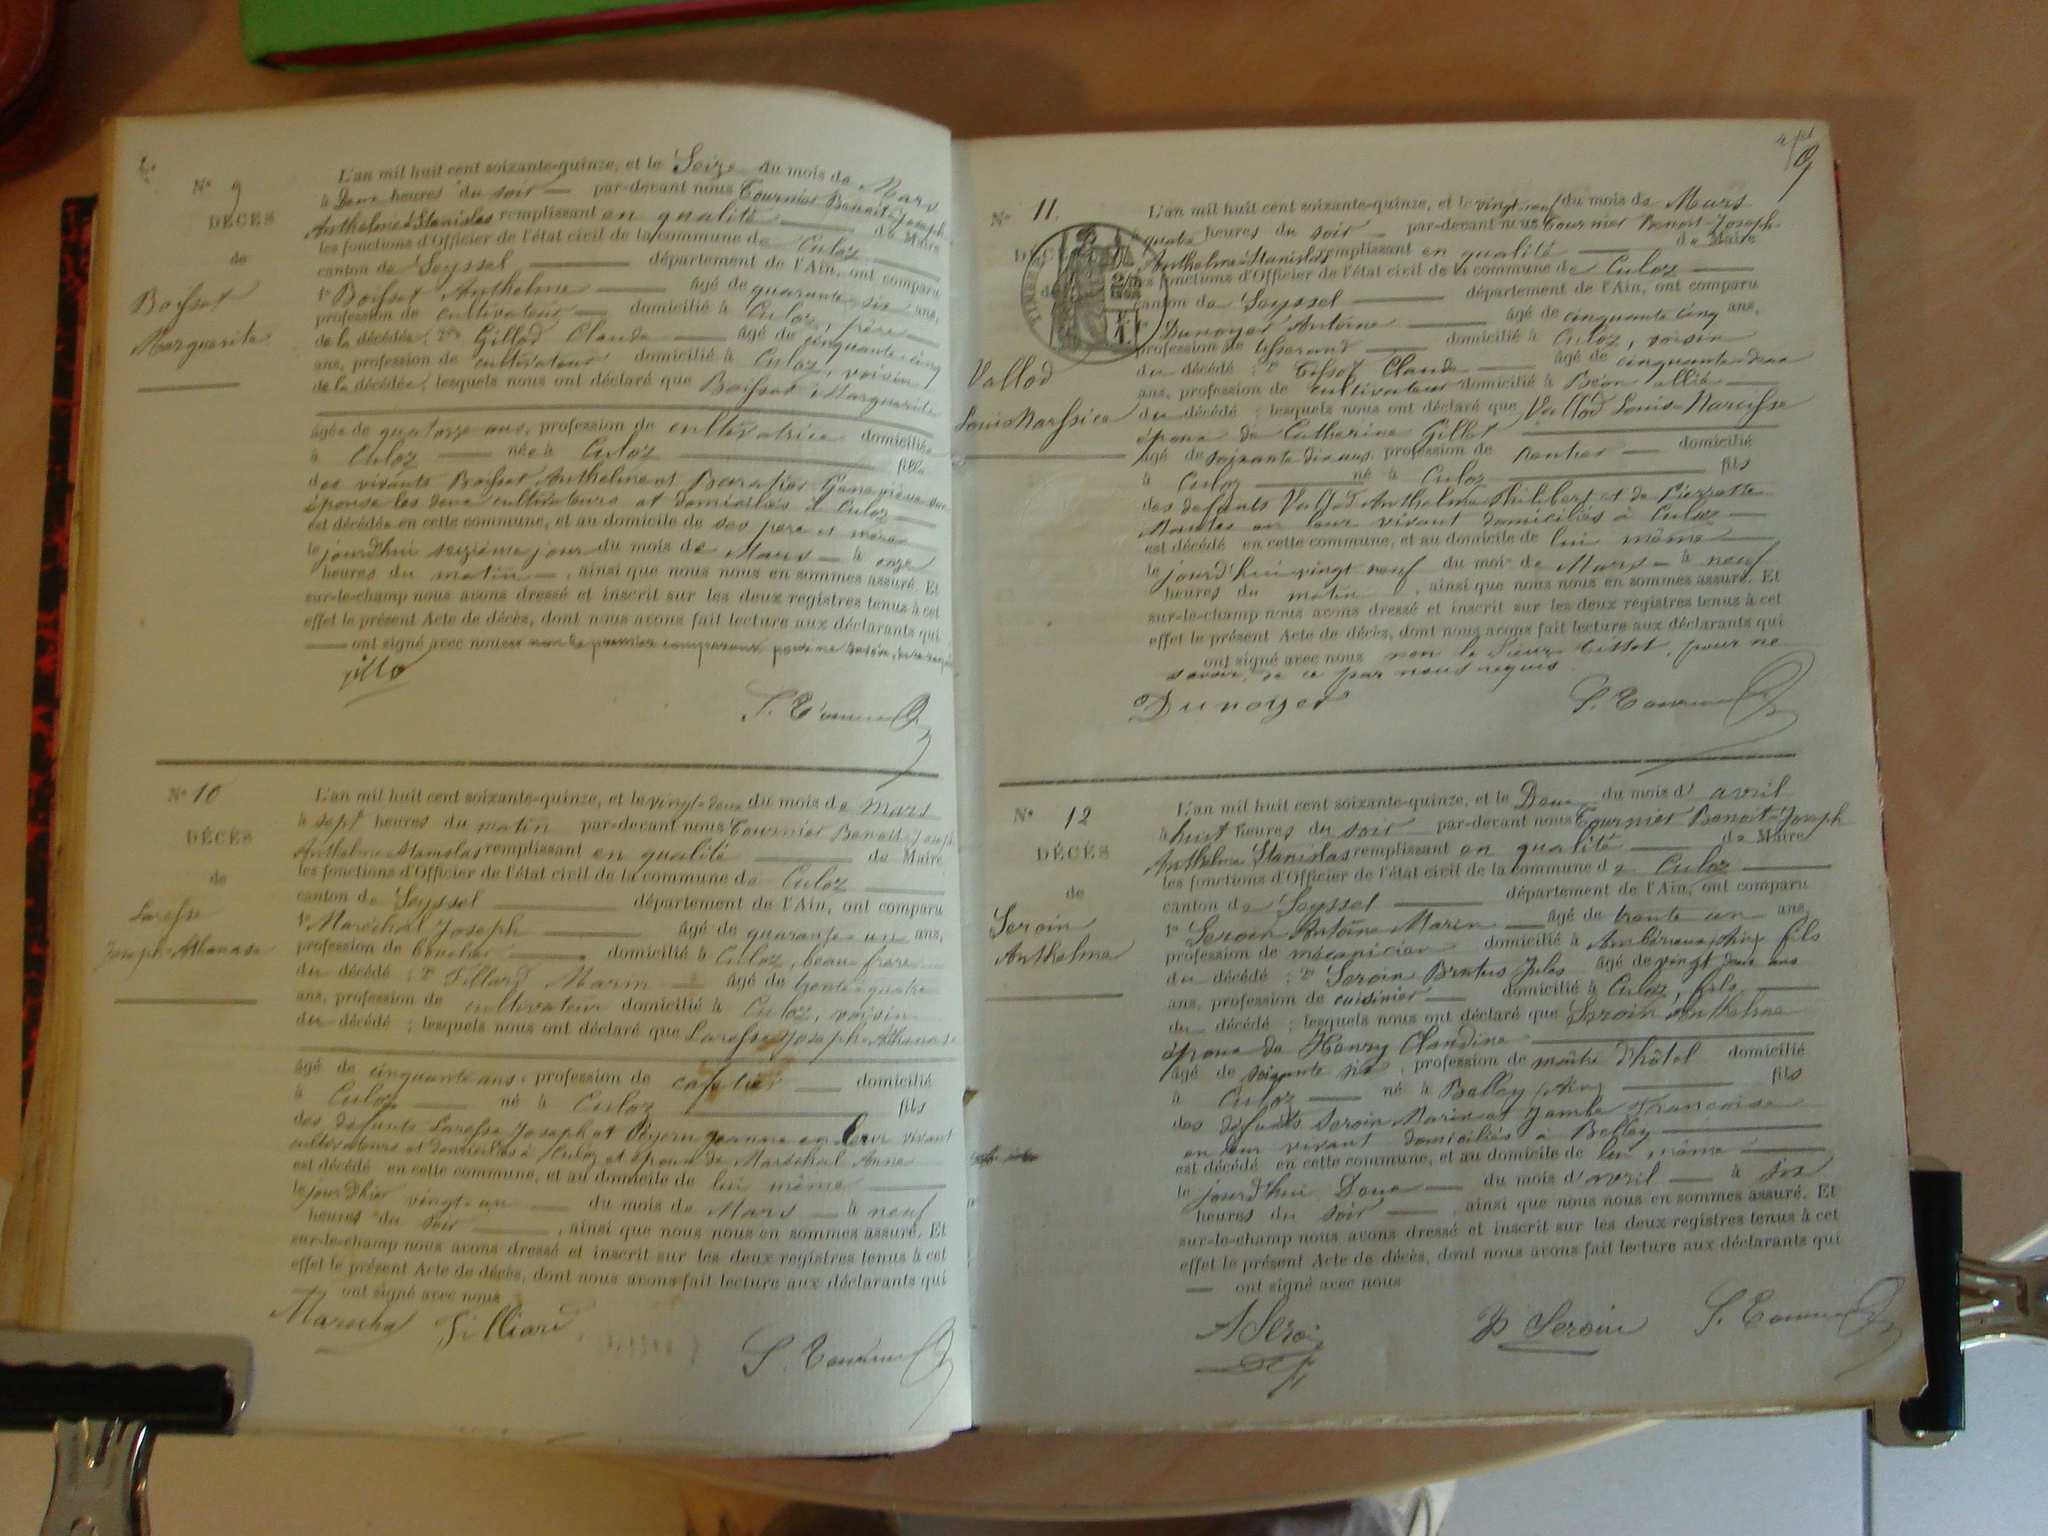 N° 9
DÉCÈS
de
Boisset
Marguerite
L'an mil huit cent soixante-quinze, et le Seize du mois de Mars
à Deux heures du soir par-devant nous Tournier Benoit-Joseph
Anthelme Stanislas remplissant en qualité de Maire
les fonctions d'Officier de l'état civil de la commune de Culoz
canton de Seyssel département de l'Ain, ont comparu
1° Boisset Anthelme âgé de quarante six ans,
profession de cultivateur domicilié à Culoz, frère
de la décédée; 2° Gillod Claude âgé de cinquante cinq
ans, profession de cultivateur domicilié à Culoz, voisin
de la décédée; lesquels nous ont déclaré que Boisset Marguerite
âgée de quatorze ans, profession de cultivatrice domiciliée
à Culoz née à Culoz fille
des vivants Boisset Anthelme et Geneviève son
épouse les deux cultivateurs et domiciliés à Culoz
est décédée en cette commune, et au domicile de ses père et mère
le jourd'hui seizième jour du mois de Mars à onze
heures du matin, ainsi que nous nous en sommes assuré. Et
sur-le-champ nous avons dressé et inscrit sur les deux registres tenus à cet
effet le présent Acte de décès, dont nous avons fait lecture aux déclarants qui
ont signé avec nous non le premier comparant pour ne savoir, de ce requis
S. Tournier
N° 10
DÉCÈS
de
Laresse
Joseph-Athanase
L'an mil huit cent soixante-quinze, et le vingt-deux du mois de Mars
à sept heures du matin par-devant nous Tournier Benoit-Joseph
Anthelme Stanislas remplissant en qualité de Maire
les fonctions d'Officier de l'état civil de la commune de Culoz
canton de Seyssel département de l'Ain, ont comparu
1° Maréchal Joseph âgé de quarante un ans,
profession de boucher domicilié à Culoz, beau frère
du décédé; 2° Marin âgé de trente quatre
ans, profession de cultivateur domicilié à Culoz, voisin
du décédé; lesquels nous ont déclaré que Laresse Joseph-Athanase
âgé de cinquante ans, profession de cafetier domicilié
à Culoz né à Culoz fils
des défunts Laresse Joseph et Jeanne en leur vivant
cultivateurs et domiciliés à Culoz et époux de Maréchal Anne
est décédé en cette commune, et au domicile de lui même
le jour d'hier vingt-un du mois de Mars à neuf
heures du soir, ainsi que nous nous en sommes assuré. Et
sur-le-champ nous avons dressé et inscrit sur les deux registres tenus à cet
effet le présent Acte de décès, dont nous avons fait lecture aux déclarants qui
ont signé avec nous
Marechal S. Tournier
9
N° 11.
DÉCÈS
de
Vallod
Louis Narssice
L'an mil huit cent soixante-quinze, et le vingt neuf du mois de Mars
à quatre heures du soir par-devant nous Tournier Benoit-Joseph
Anthelme Stanislas remplissant en qualité de Maire
les fonctions d'Officier de l'état civil de la commune de Culoz
canton de Seyssel département de l'Ain, ont comparu
1° Dunoyer Antoine âgé de cinquante cinq ans,
profession de tisserand domicilié à Culoz, voisin
du décédé; 2° Tissot Claude âgé de cinquante deux
ans, profession de cultivateur domicilié à Béon allié
du décédé; lesquels nous ont déclaré que Vallod Louis-Narcisse
époux de Catherine Gillet
âgé de soixante dix ans, profession de rentier domicilié
à Culoz né à Culoz fils
des défunts Vallod Anthelme Philibert et de Pierrette
en leur vivant domiciliés à Culoz
est décédé en cette commune, et au domicile de lui même
le jourd'hui vingt neuf du mois de Mars à neuf
heures du matin, ainsi que nous nous en sommes assuré. Et
sur-le-champ nous avons dressé et inscrit sur les deux registres tenus à cet
effet le présent Acte de décès, dont nous avons fait lecture aux déclarants qui
ont signé avec nous non le Sieur Tissot, pour ne
savoir, de ce par nous requis
Dunoyer S. Tournier
N° 12
DÉCÈS
de
Seroin
Anthelme
L'an mil huit cent soixante-quinze, et le Douze du mois d'avril
à huit heures du soir par-devant nous Tournier Benoit-Joseph
Anthelme Stanislas remplissant en qualité de Maire
les fonctions d'Officier de l'état civil de la commune de Culoz
canton de Seyssel département de l'Ain, ont comparu
1° Seroin Antoine Marin âgé de trente un ans,
profession de mécanicien domicilié à Ambérieux, Ain, fils
du décédé; 2° Seroin Brutus Jules âgé de vingt deux ans
ans, profession de cuisinier domicilié à Culoz, fils
du décédé; lesquels nous ont déclaré que Seroin Anthelme
époux de Henry Claudine
âgé de soixante six, profession de maître d'hôtel domicilié
à Culoz né à Belley (Ain) fils
des défunts Seroin Marin et Jambe Françoise
en leur vivant domiciliés à Belley
est décédé en cette commune, et au domicile de lui même
le jourd'hui Douze du mois d'avril à six
heures du soir, ainsi que nous nous en sommes assuré. Et
sur-le-champ nous avons dressé et inscrit sur les deux registres tenus à cet
effet le présent Acte de décès, dont nous avons fait lecture aux déclarants qui
ont signé avec nous
A Seroin Seroin S. Tournier